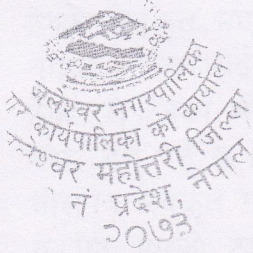 जलेश्वर नगरपालिका
कार्यपालिका को कार्यालय
महोत्तरी जिल्ला
नं प्रदेश, नेपाल
२०७३